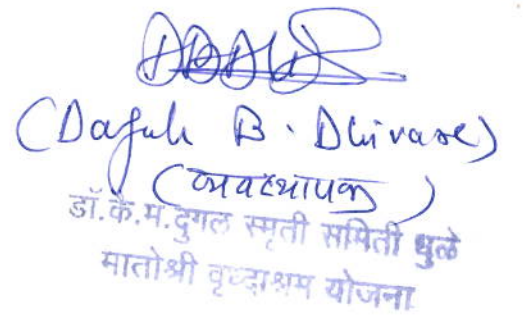 (Daguh B. Dhivare)
(व्यवस्थापक)
डॉ.कै.म.दुगल स्मृती समिती धुळे
मातोश्री वृध्दाश्रम योजना